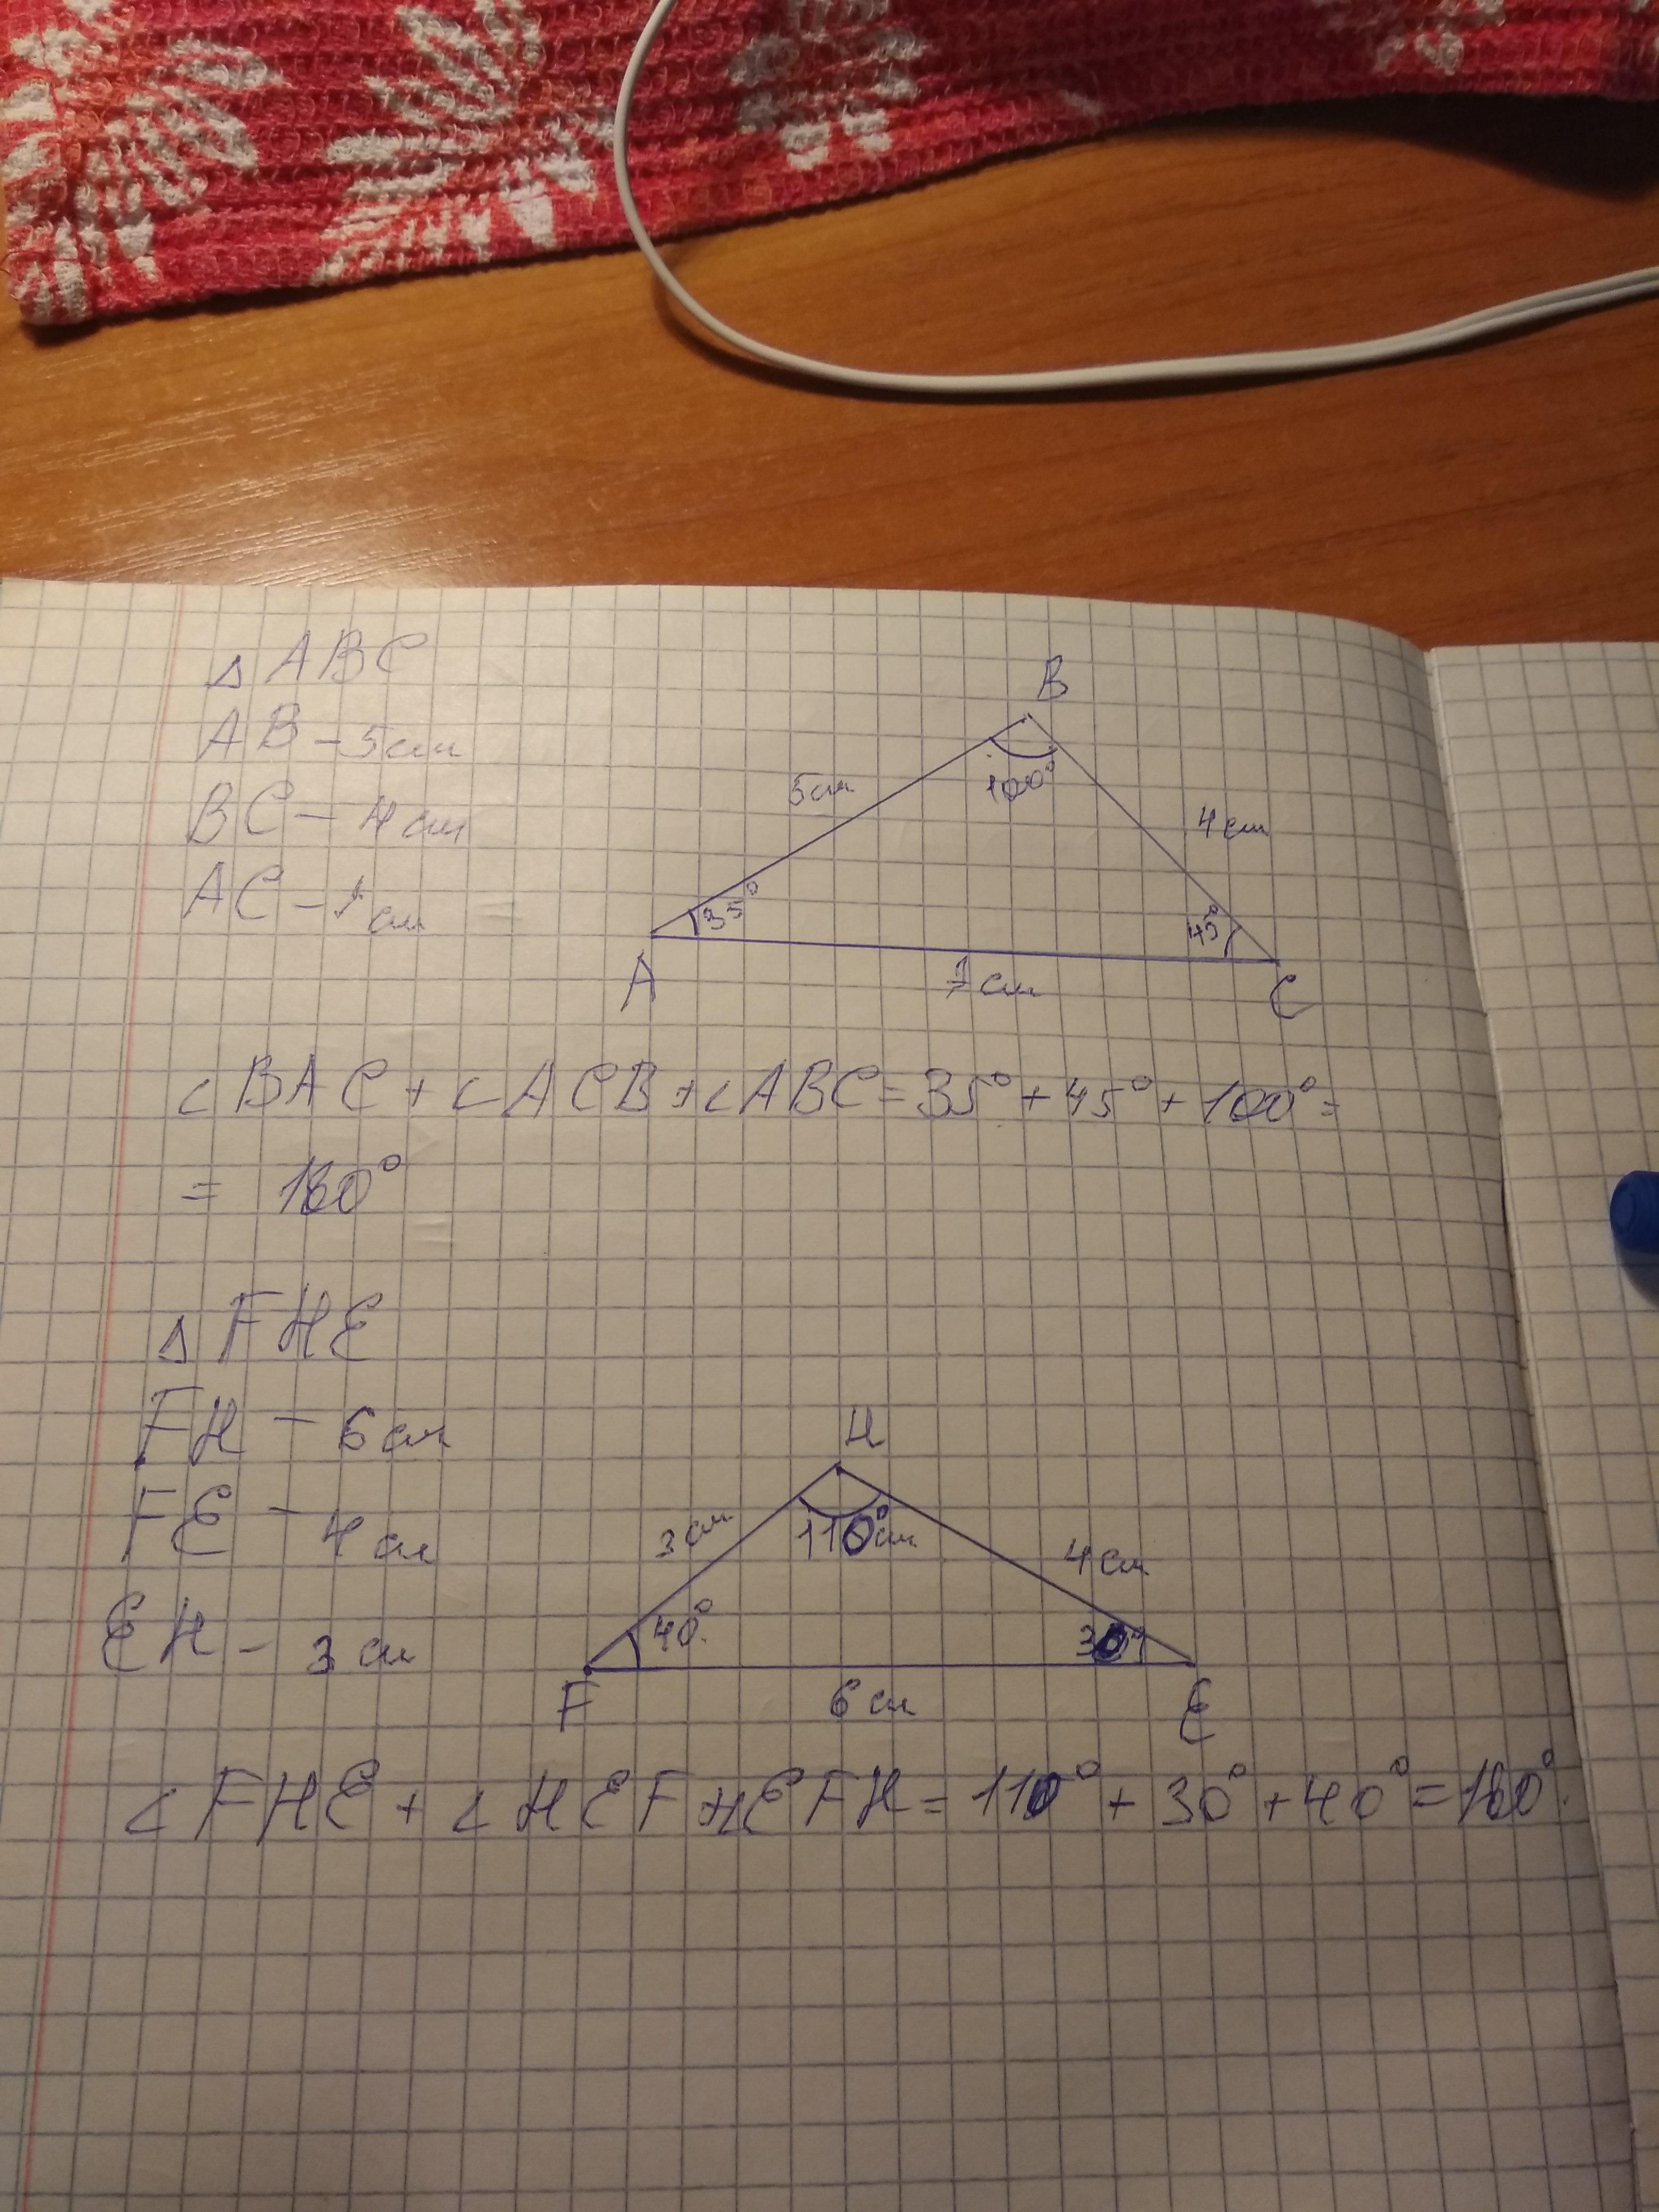 △ABC
AB – 5 см
BC – 4 см
AC – 7 см
B
5 см
100°
4 см
35°
45°
A
7 см
C
∠BAC + ∠ACB + ∠ABC = 35° + 45° + 100° =
= 180°
△FHE
FH – 6 см
FE – 4 см
EH – 3 см
H
3 см
110° см
4 см
40°
30°
F
6 см
E
∠FHE + ∠HEF + ∠EFH = 110° + 30° + 40° = 180°.